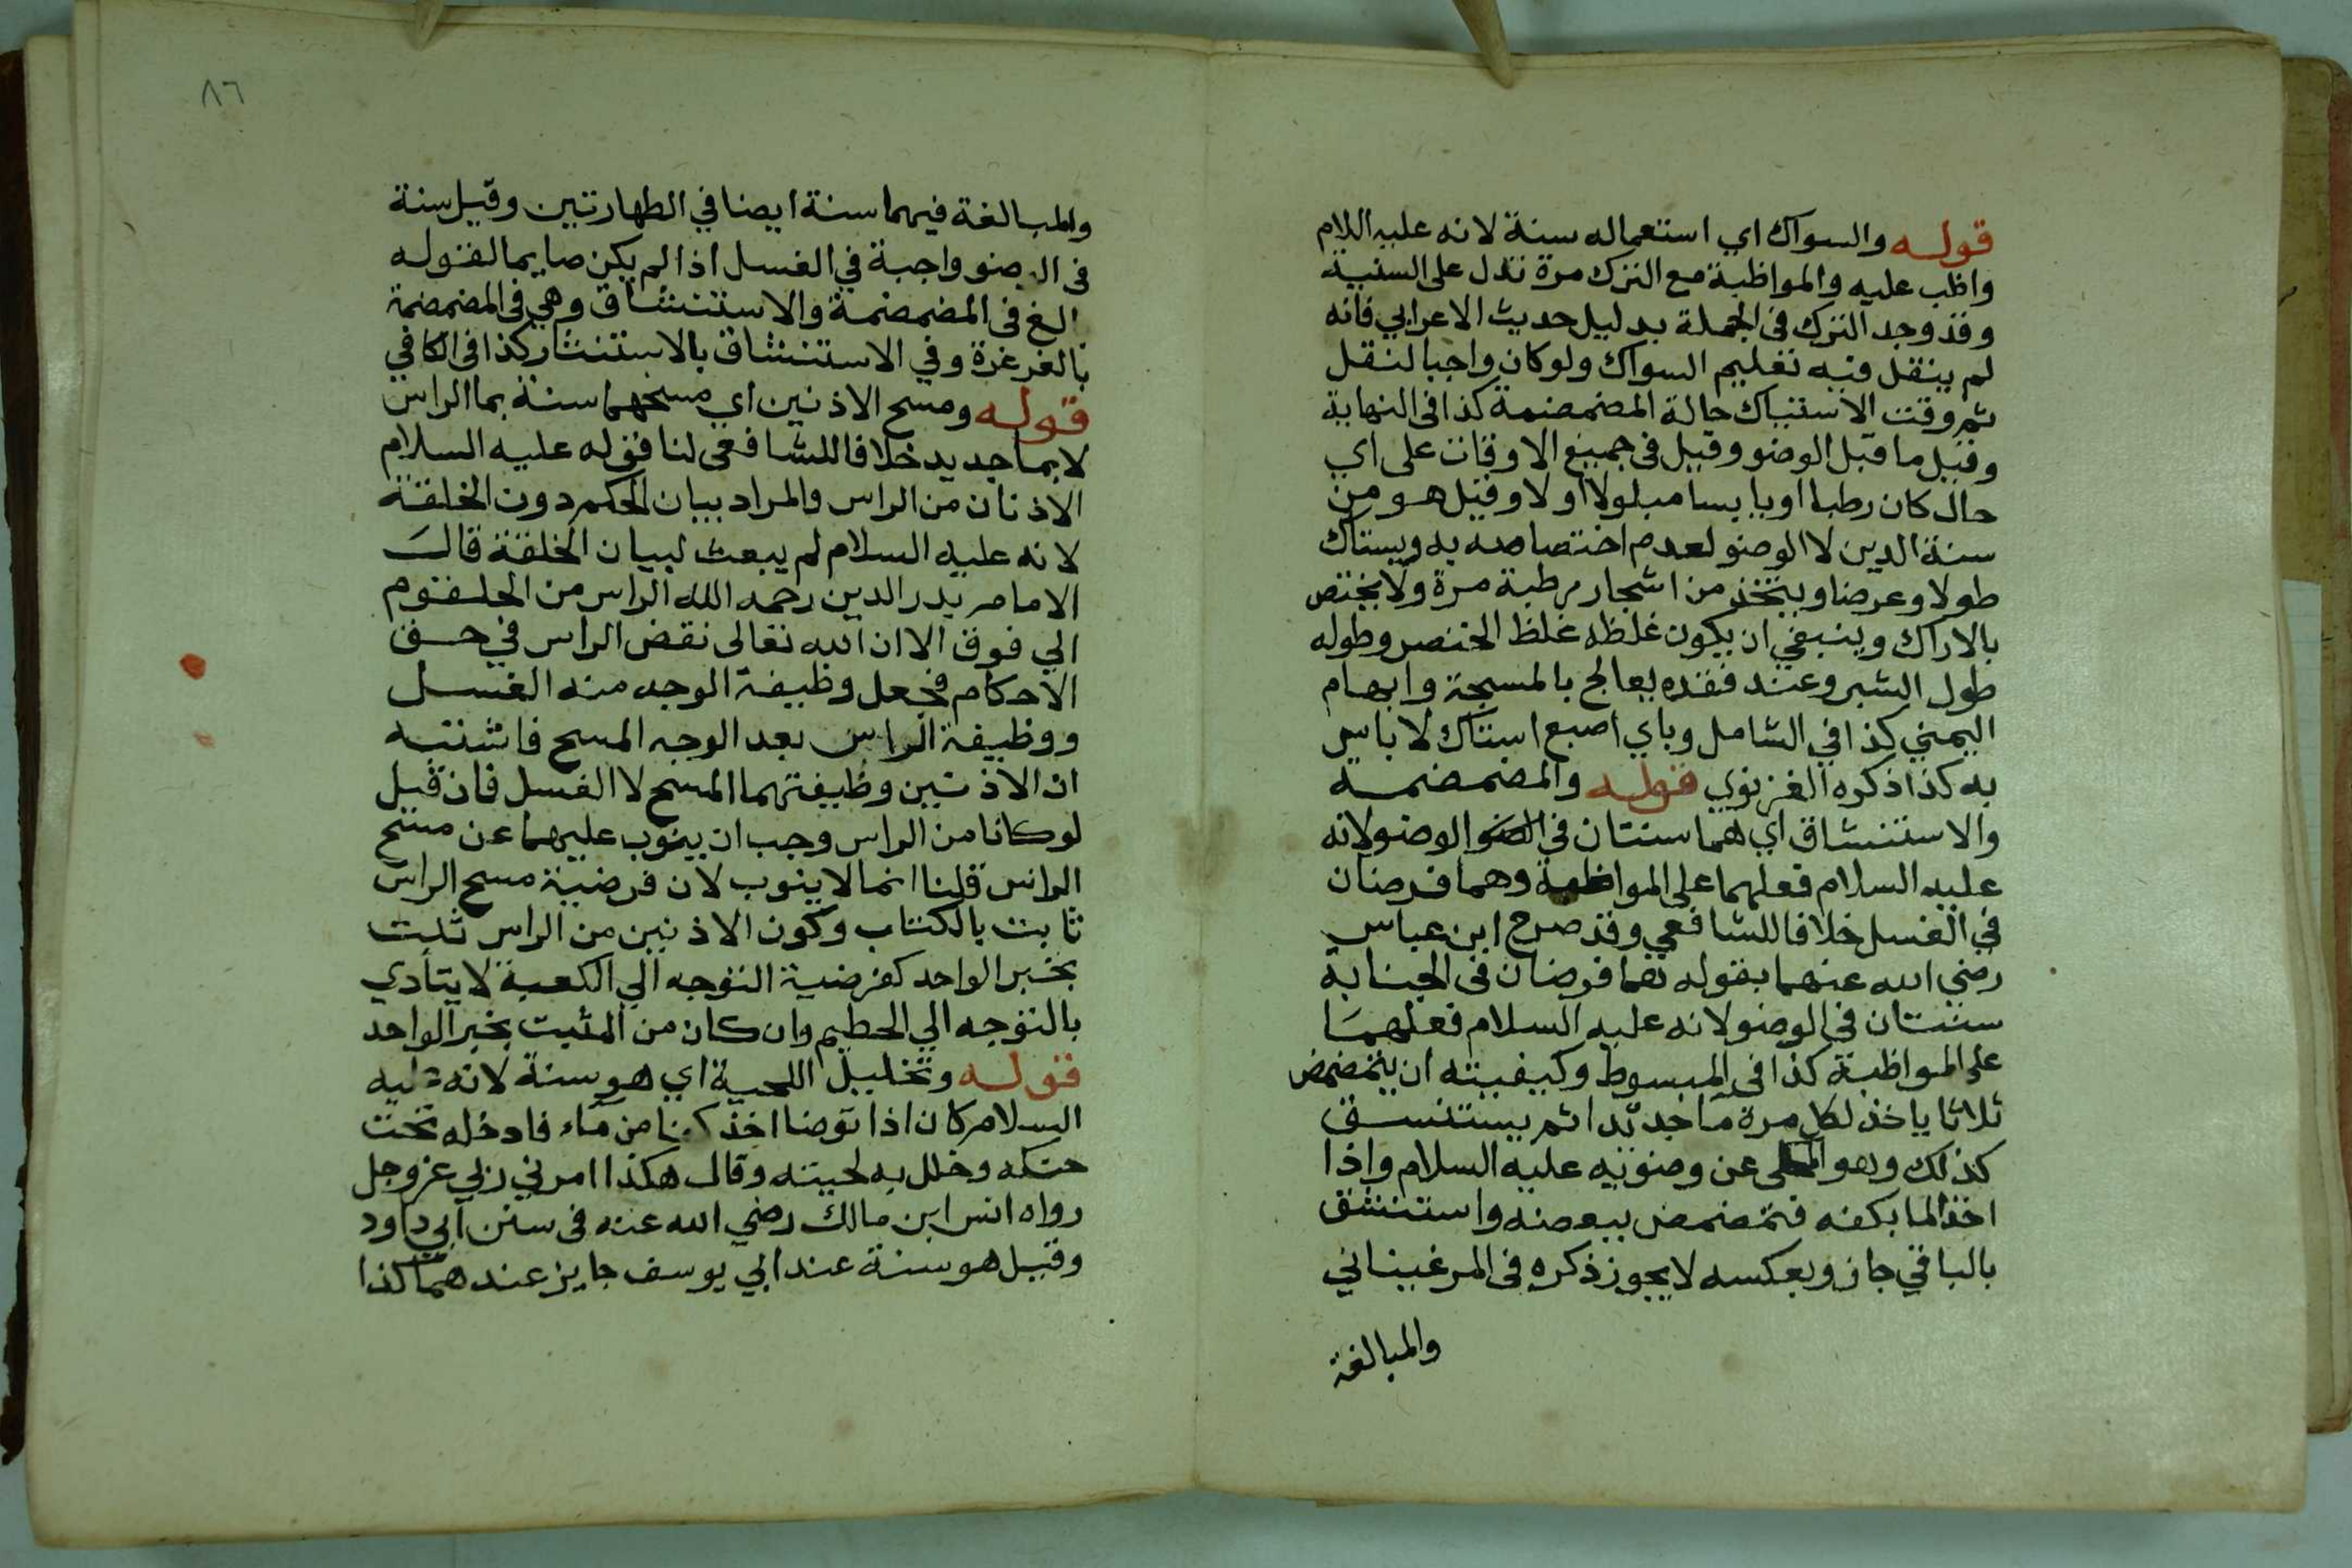 قوله والسواك اي استعماله سنة لانه عليه اللام
واظب عليه والمواظبة مع الترك مرة تدل على السنية
وقد وجد الترك فى الجملة بدليل حديث الاعرابي فانه
لم ينقل فيه تعليم السواك ولو كان واجبا لنقل
ثم وقت الاستياك حالة المضمضة كذا فى النهاية
وقيل ما قبل الوضو وقيل فى جميع الاوقات على اي
حال كان رطبا او يابسا مبلولا اولا وقيل هو من
سنة الدين لا الوضو لعدم اختصاصه به ويستاك
طولا وعرضا ويتخذ من اشجار رطبة مرة ولا يختص
بالاراك وينبغي ان يكون غلظه غلظ الخنصر وطوله
طول الشبر وعند فقده يعالج بالمسبحة وابهام
اليمني كذا في الشامل وباي اصبع استاك لا باس
به كذا ذكره الغزنوي قوله والمضمضة
والاستنشاق اي هما سنتان في الوضو لانه
عليه السلام فعلهما على المواظبة وهما فرضان
في الغسل خلافا للشافعي وقد صرح ابن عباس
رضي الله عنهما بقوله هما فرضان فى الجنابة
سنتان في الوضو لانه عليه السلام فعلهما
على المواظبة كذا فى المبسوط وكيفيته ان يتمضمض
ثلاثا ياخذ لكل مرة ما جديدا ثم يستنشق
كذلك وهو المحكى عن وضوئه عليه السلام واذا
اخذ الما بكفه فتمضمض ببعضه واستنشق
بالباقي جاز وبعكسه لا يجوز ذكره فى المرغيناني
والمبالغة
٨٦
والمبالغة فيهما سنة ايضا في الطهارتين وقيل سنة
فى الوضو واجبة في الغسل اذا لم يكن صايما لقوله
بالغ فى المضمضة والاستنشاق وهي فى المضمضة
بالغرغرة وفي الاستنشاق بالاستنثار كذا فى الكافي
قوله ومسح الاذنين اي مسحهما سنة بما الراس
لا بما جديد خلافا للشافعى لنا قوله عليه السلام
الاذنان من الراس والمراد بيان الحكم دون الخلقة
لانه عليه السلام لم يبعث لبيان الخلقة قال
الامام بدر الدين رحمه الله الراس من الحلقوم
الي فوق الا ان الله تعالى نقض الراس في حق
الاحكام فجعل وظيفة الوجه منه الغسل
ووظيفة الراس بعد الوجه المسح فاشتبه
ان الاذنين وظيفتهما المسح لا الغسل فان قيل
لو كانا من الراس وجب ان ينوب عليهما عن مسح
الراس قلنا انما لا ينوب لان فرضية مسح الراس
ثابت بالكتاب وكون الاذنين من الراس ثبت
بخبر الواحد كفرضية التوجه الي الكعبة لا يتأدي
بالتوجه الي الحطيم وان كان من البيت بخبر الواحد
قوله وتخليل اللحية اي هو سنة لانه عليه
السلام كان اذا توضا اخذ كفا من ماء فادخله تحت
حنكه وخلل به لحيته وقال هكذا امرني ربي عز وجل
رواه انس ابن مالك رضي الله عنه فى سنن ابي داود
وقيل هو سنة عند ابي يوسف جايز عندهما كذا